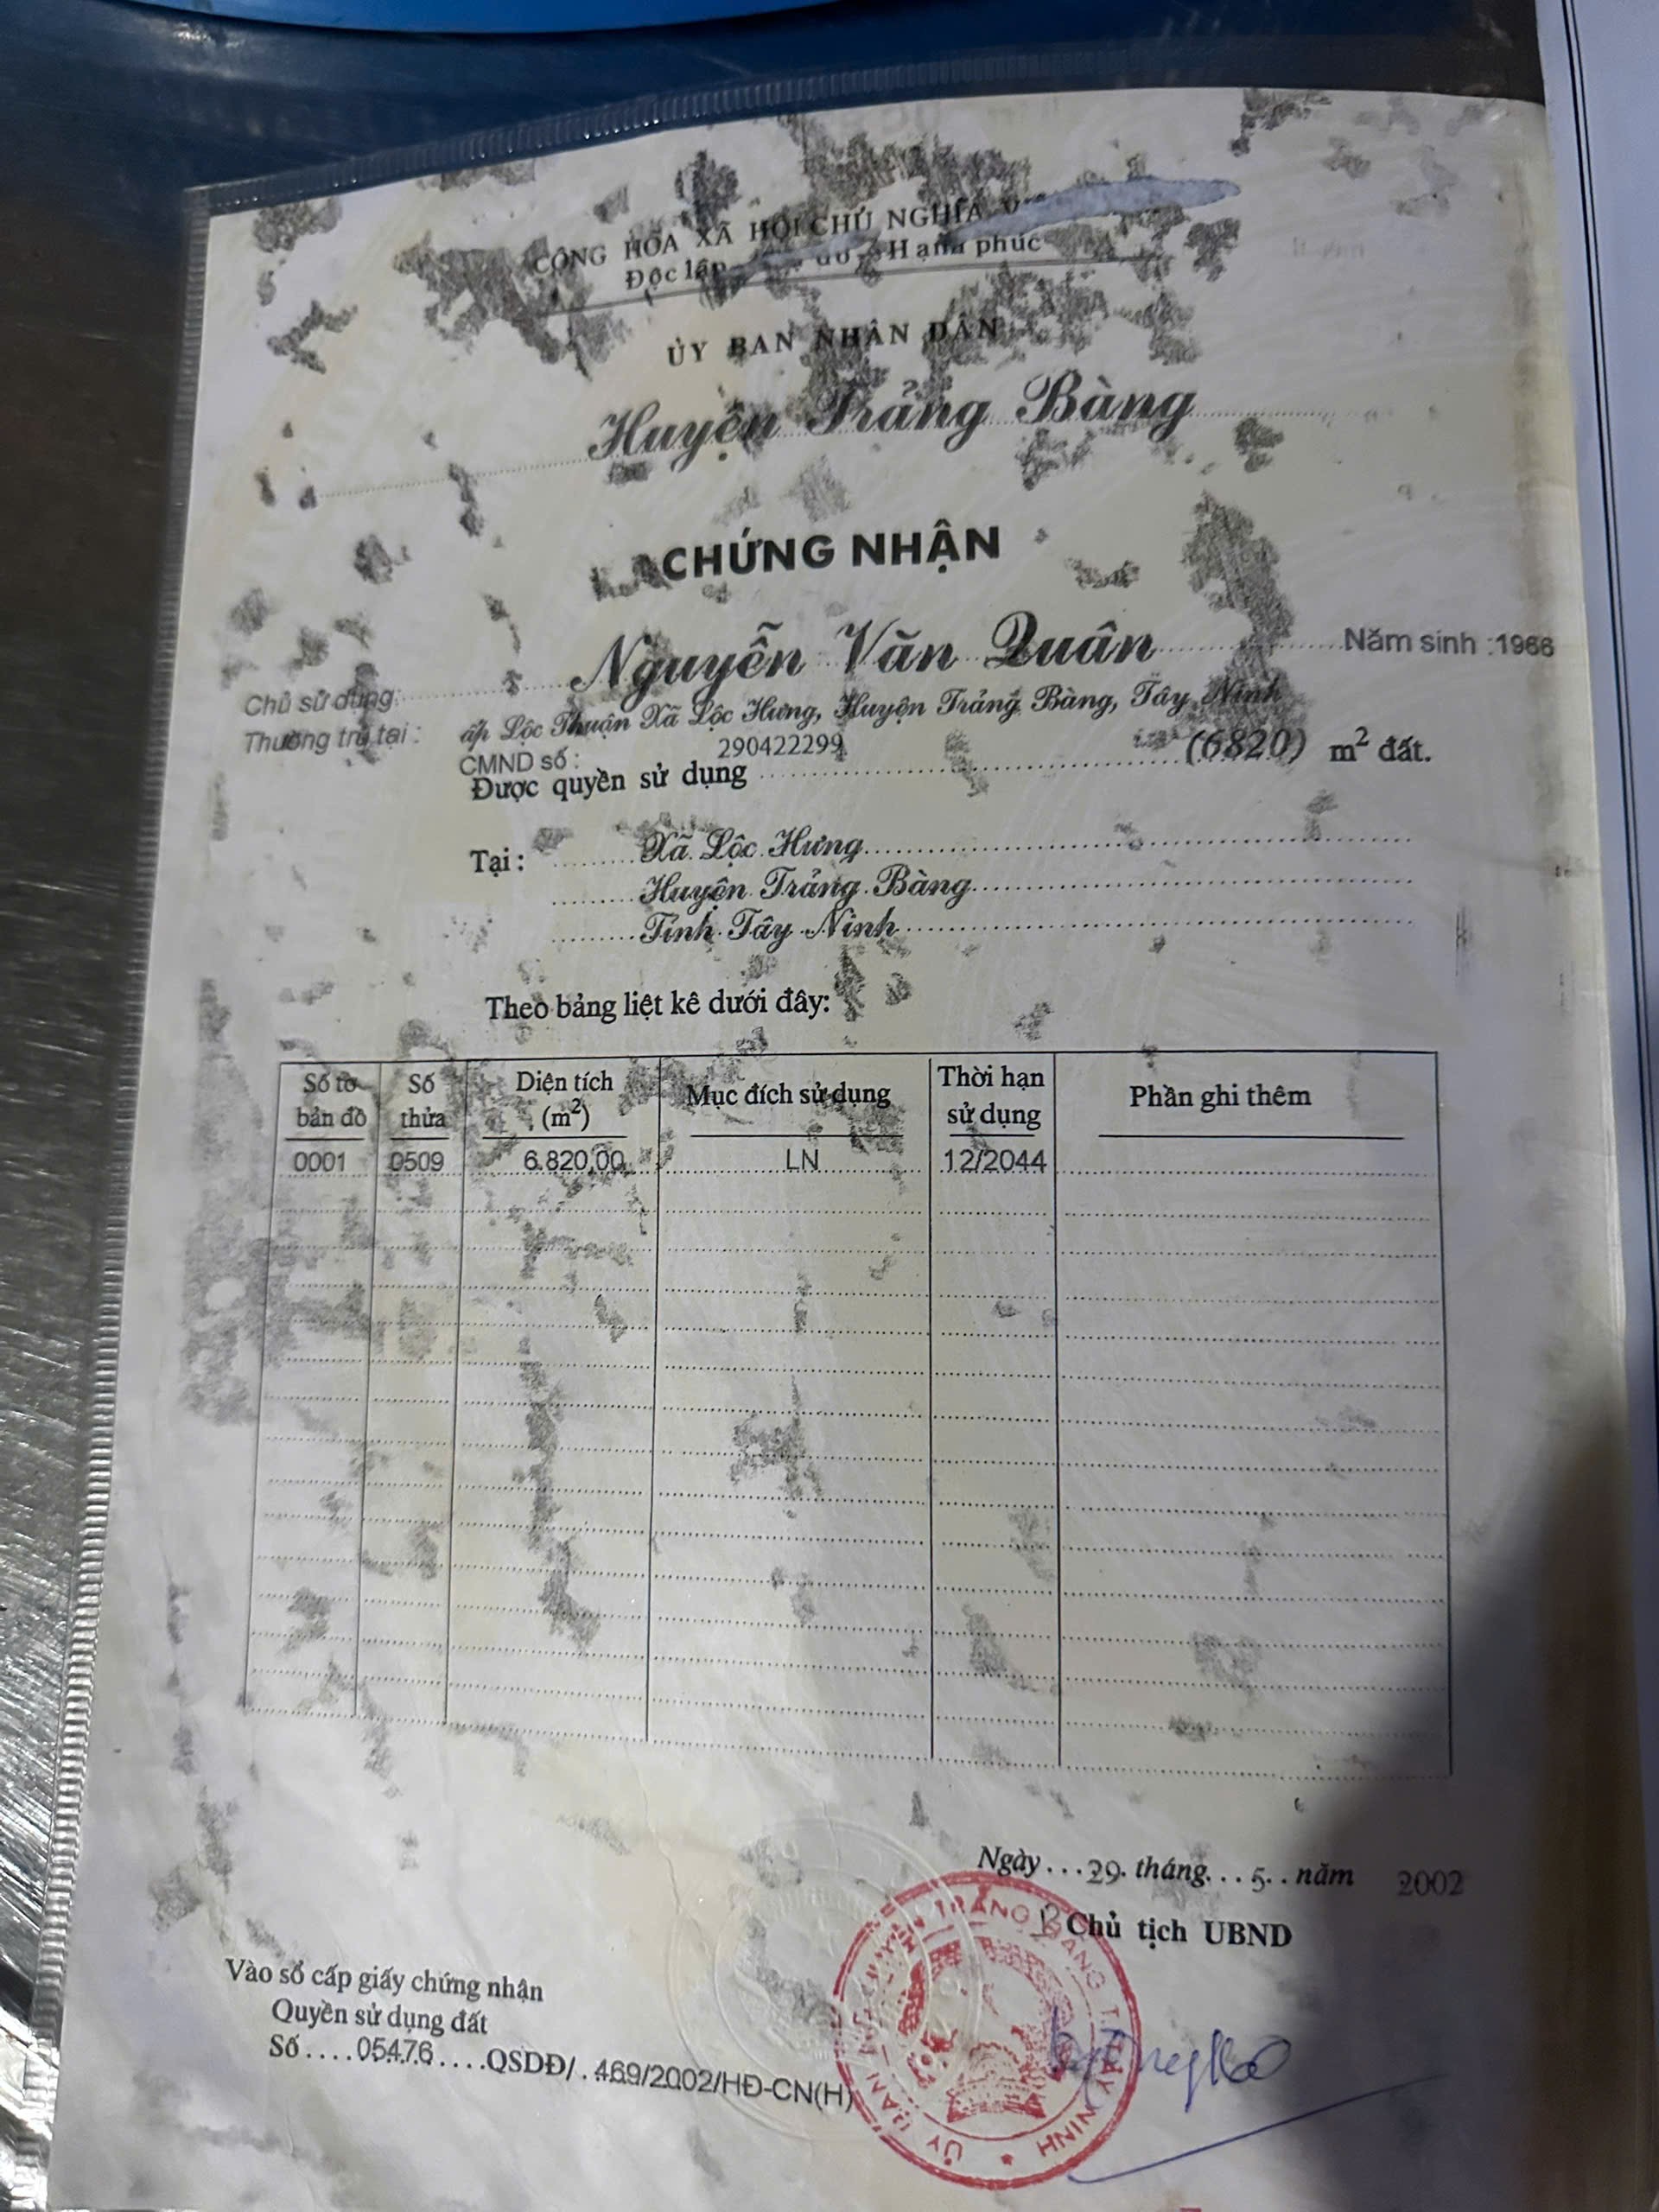 CỘNG HÒA XÃ HỘI CHỦ NGHĨA
Độc lập do - Hạnh phúc
ỦY BAN NHÂN DÂN
Huyện Trảng Bàng
CHỨNG NHẬN
Nguyễn Văn Quân Năm sinh :1966
Chủ sử dụng:
Thường trú tại : ấp Lộc Thuận Xã Lộc Hưng, Huyện Trảng Bàng, Tây Ninh
CMND số : 290422299
Được quyền sử dụng (6820) m² đất.
Tại : Xã Lộc Hưng
Huyện Trảng Bàng
Tỉnh Tây Ninh
Theo bảng liệt kê dưới đây:
Số tờ bản đồ Số thửa Diện tích (m²) Mục đích sử dụng Thời hạn sử dụng Phần ghi thêm
0001 0509 6.820,00 LN 12/2044
Ngày...29.tháng...5..năm 2002
Chủ tịch UBND
Vào sổ cấp giấy chứng nhận
Quyền sử dụng đất
Số....05476....QSDĐ/.469/2002/HĐ-CN(H)
ỦY BAN HUYỆN TRẢNG BÀNG T.TÂY NINH